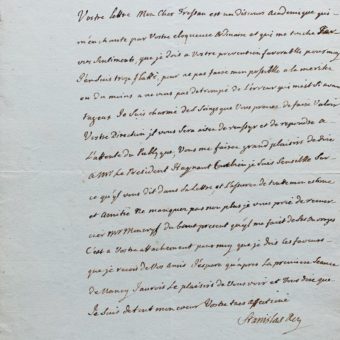 Vostre lettre Mon Cher Tressan est un discours Academique qui
m'enchante par Vostre eloquence ordinaire et qui me touche par
vos Sentiments, que je dois a Vostre prevention favorable pour moy
J'en suis trop flatté, pour ne pas faire mon possible a la meriter
ou du moins a ne vous pas detrompé de l'erreur qui m'est si avan
tageux Je Suis charmé des Soins que Vous prenés de faire Valoir
Vostre Direction il vous Sera aisé de reussyr et de repondre a
l'attente du Publique, Vous me faires grand plaisirs de dire
a Mr Le President Haynault Combien je Suis Sensible Sur
ce qu'il vous dit dans sa lettre et
et Amitié Ne manqués pas non plus je vous prié de remer
cier Mr Moncryf du beau present qu'il me fait de Ses ouvrages
C'est a Vostre attachement pour moy que je dois les faveurs
que je recois de Vos amis J'espere qu'apres la premiere Seance
de Nancy J'aurois Le plaisir de Vous voir et Vous dire que
Je Suis de tout mon coeur Vostre tres affectioné
Stanislas Roy